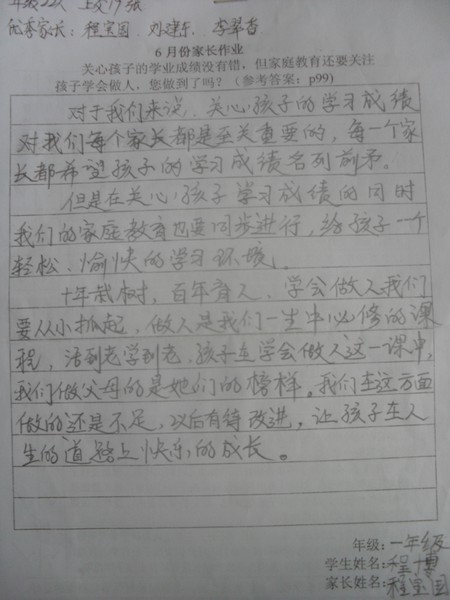 年级22人 上交19张
优秀家长：程宝国 刘建东 李翠香
6 月份家长作业
关心孩子的学业成绩没有错，但家庭教育还要关注
孩子学会做人，您做到了吗？（参考答案：p99）
对于我们来说，关心孩子的学习成绩
对我们每个家长都是至关重要的，每一个家
长都希望孩子的学习成绩名列前矛。
但是在关心孩子学习成绩的同时
我们的家庭教育也要同步进行，给孩子一个
轻松、愉快的学习环境。
十年栽树，百年育人、学会做人我们
要从小抓起，做人是我们一生中必修的课
程，活到老学到老，孩子在学会做人这一课中，
我们做父母的是她们的榜样。我们在这方面
做的还是不足，以后有待改进，让孩子在人
生的道路上快乐的成长。
年级：一年级
学生姓名：程博
家长姓名：程宝国